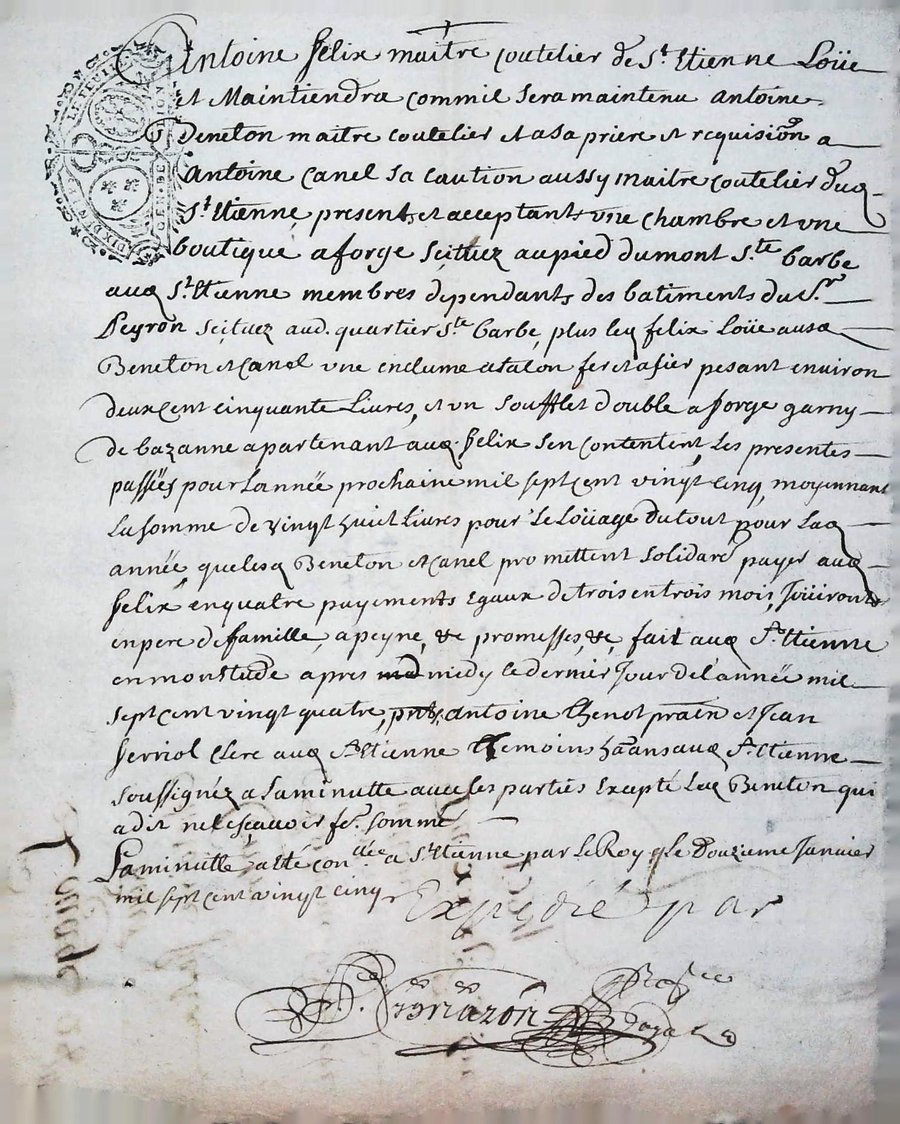 Antoine felix maitre coutelier de St. Etienne Loüe
et Maintiendra commil sera maintenu antoine
Beneton maitre coutelier et a sa priere et requision a
Antoine Canel sa caution aussy maitre coutelier dud
St. Etienne, presents et acceptants vne chambre et vne
boutique a forge scituez au pied du mont Ste barbe
aud St. Etienne membres dependants des batiments du Sr
Peyron scituez aud. quartier Ste barbe, plus led felix Loüe ausd
Beneton et Canel vne enclume a talon fer et assier pesant enuiron
deux cent cinquante Liures, et vn soufflet double a forge garny
de bazanne apartenant aud. felix sen contentent, Les presentes
passées pour Lannée prochaine mil sept cent vingt cinq, moyennant
La somme de vingt huit Liures pour Le Loüage du tout pour Lad
année, que lesd Beneton et Canel promettent solidare payer aud
felix en quatre payements Egaux de trois en trois mois, Joüiront
en pere de famille, a peyne, &c promesses, &c, fait aud St. Etienne
en mon stude apres midy le dernier Jour de l'année mil
sept cent vingt quatre, pnts, antoine Thenot pratn et Jean
ferriol Clerc aud St. Etienne themoins haans aud St. Etienne
soussignéz a La minutte auec les parties Exapté Led Beneton qui
a dit ne le sçauoir fe. sommé
La minutte a été conllée a St Etienne par Le Roy Le Douzieme Januier
mil sept cent vingt cinq
Expedié par